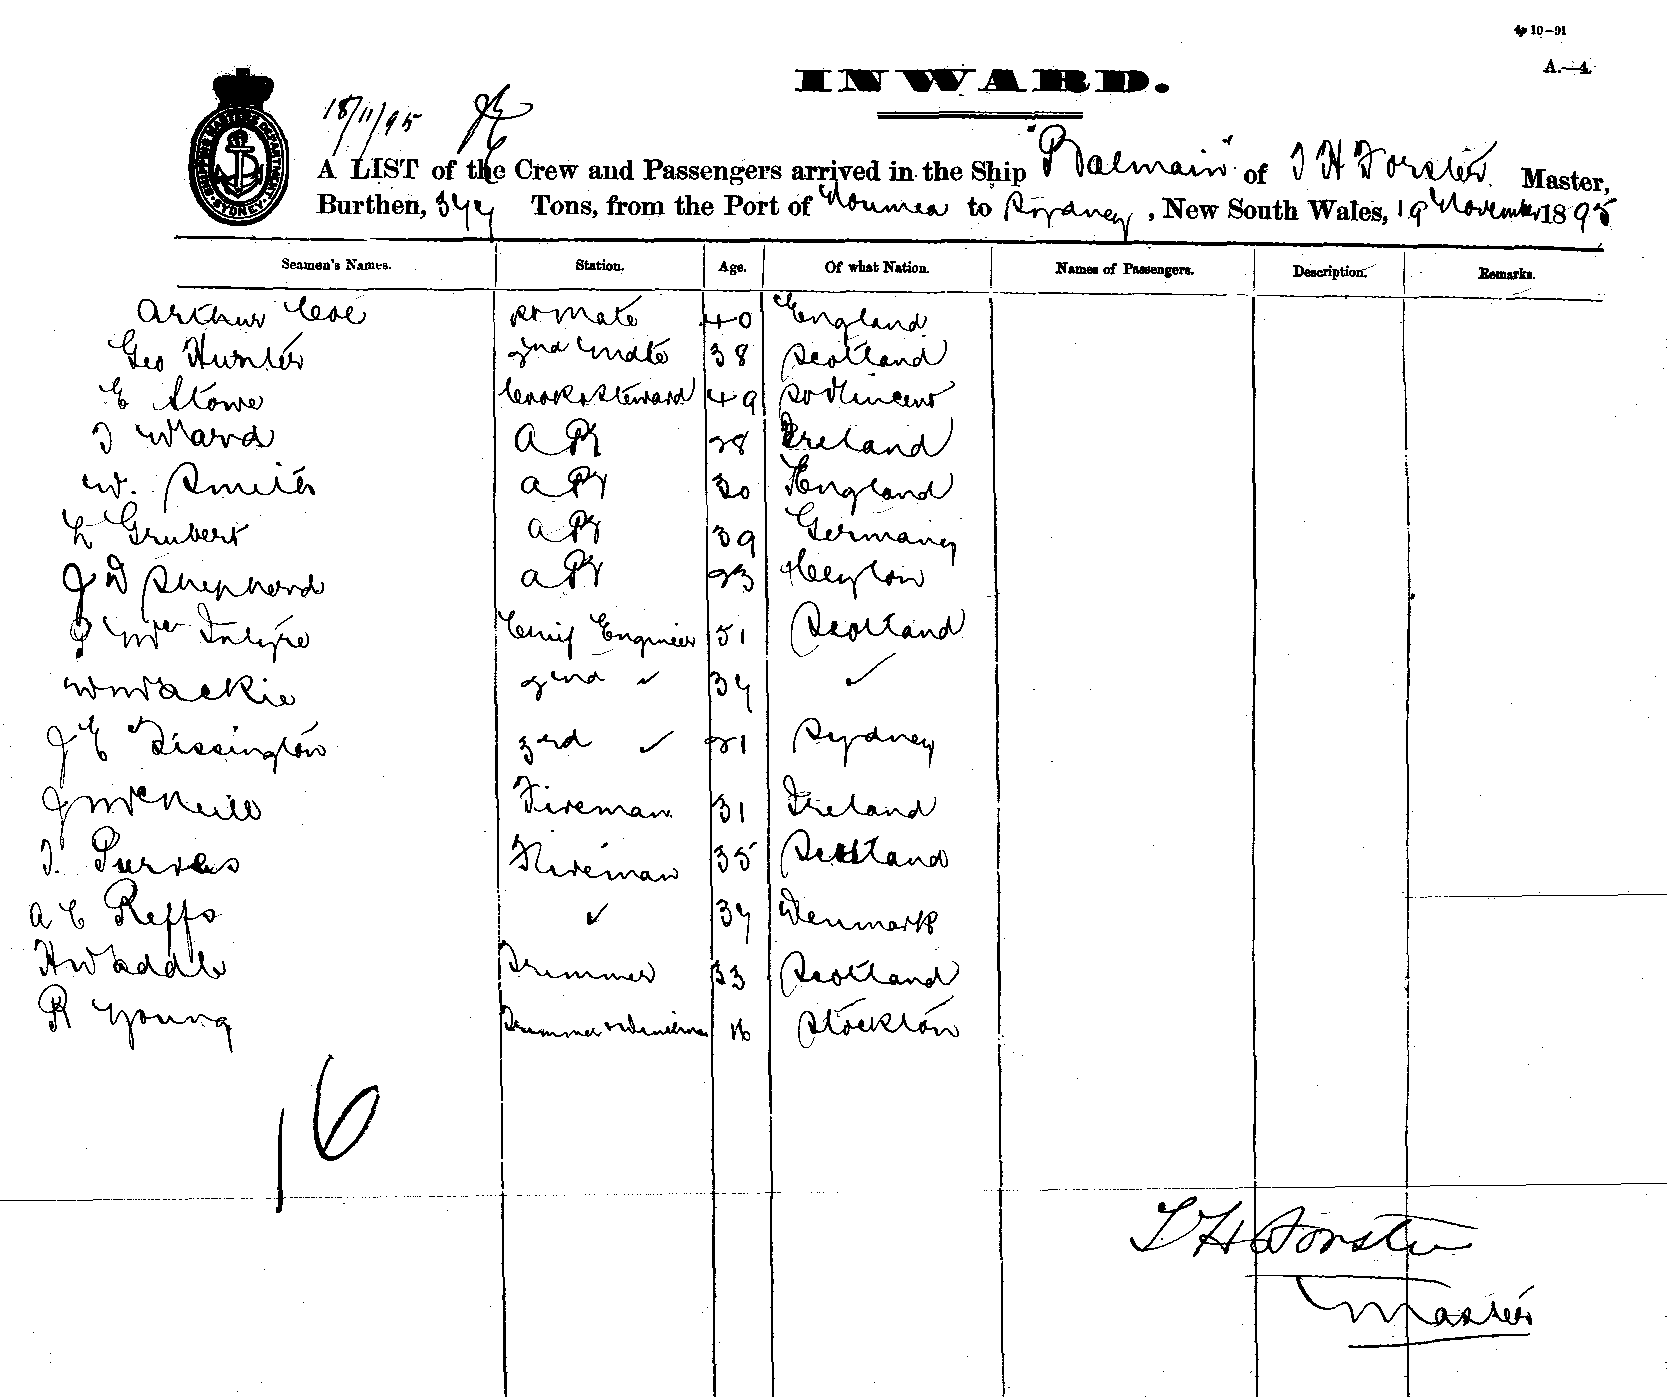 4p 10–91
A.—4.
INWARD.
18/11/95
A LIST of the Crew and Passengers arrived in the Ship "Balmain" of T H Forster Master,
Burthen, 377 Tons, from the Port of Noumea to Sydney, New South Wales, 19 November 1895
Seamen's Names. Station. Age. Of what Nation. Names of Passengers. Description. Remarks.
Arthur Coe 1st Mate 40 England
Geo Hunter 2nd Mate 38 Scotland
E Stowe Cook & Steward 49 St Vincent
T Ward A B 28 Ireland
W. Smith A B 30 England
L Grubert A B 39 Germany
J D Shepherd A B 23 Ceylon
P McIntyre Chief Engineer 51 Scotland
W Mackie 2nd ✓ 37 ✓
J E Tissington 3rd ✓ 21 Sydney
J McNeill Fireman 31 Ireland
T. Purves Fireman 35 Scotland
A C Reffs ✓ 37 Denmark
H Waddle Trimmer 33 Scotland
R Young Trimmer 16 Stockton
16
T H Forster
Master